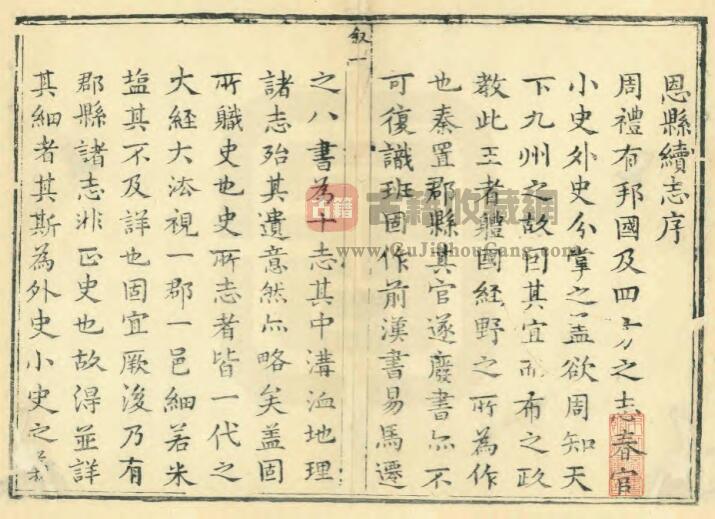 恩縣續志序
周禮有邦國及四方之志春官
小史外史分掌之蓋欲周知天
下九州之故因其宜而布之政
教此王者體國經野之所為作
也秦置郡縣其官遂廢書亦不
可復識班固作前漢書易馬遷
敘一
之八書為十志其中溝洫地理
諸志殆其遺意然亦略矣盖固
所職史也史所志者皆一代之
大經大法視一郡一邑細若米
塩其不及詳也固宜厥後乃有
郡縣諸志非正史也故得並詳
其細者其斯為外史小史之
古籍
古籍收藏網
www.GuJiShouCang.com